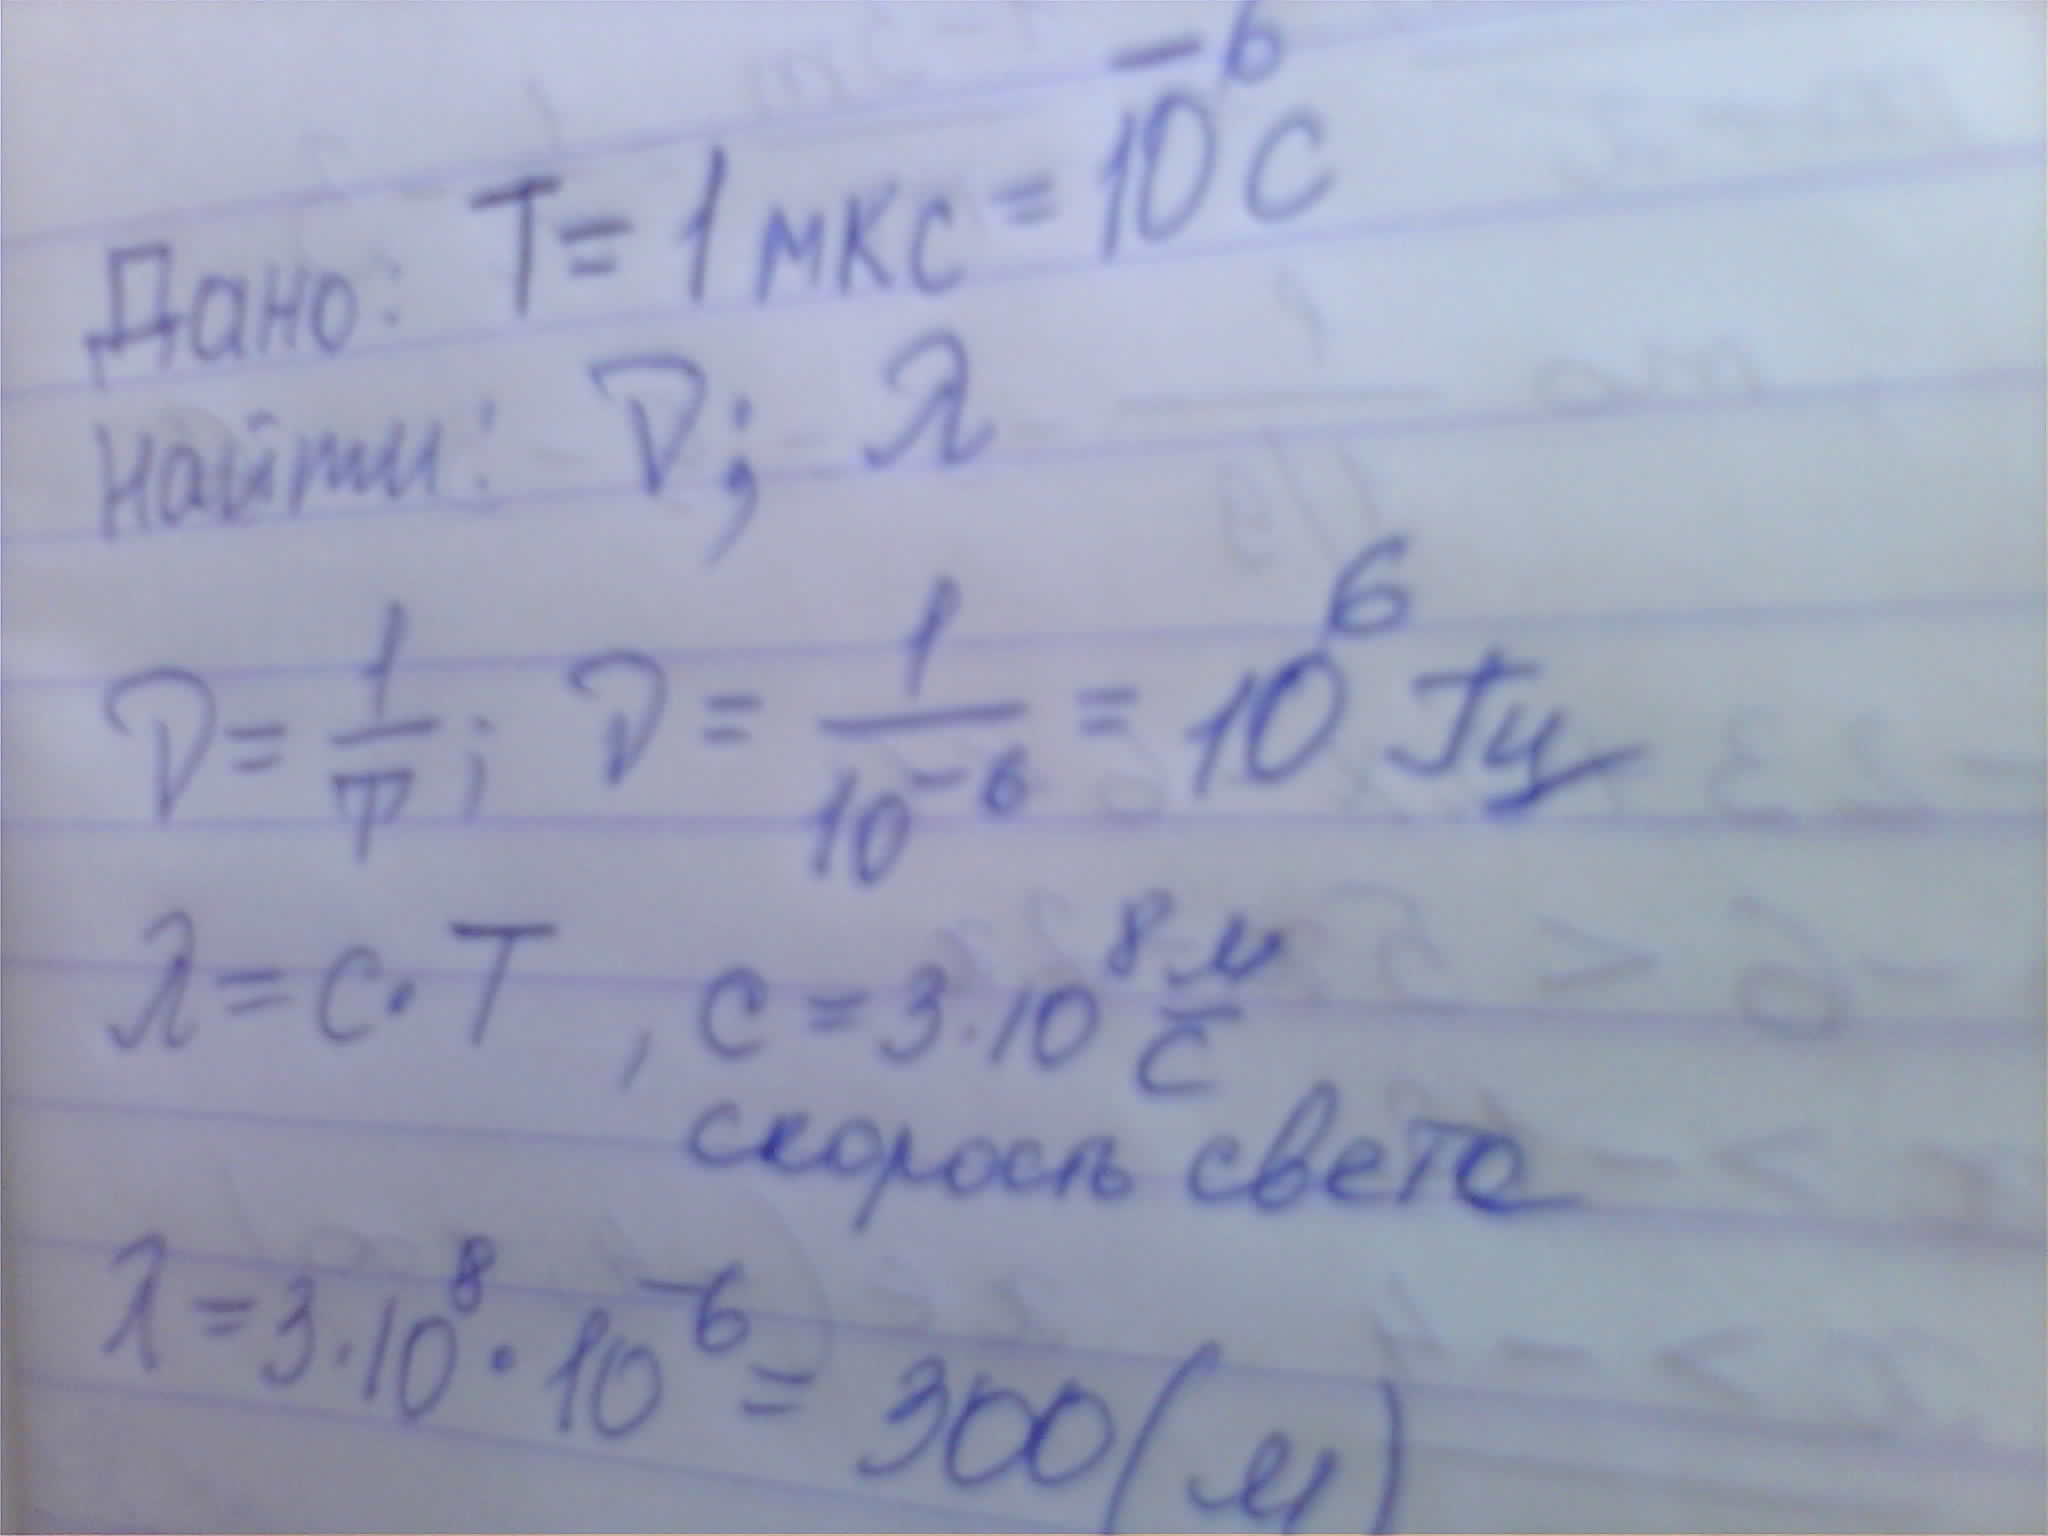 Дано: T = 1 мкс = 10⁻⁶ с
Найти: ν; λ
ν = 1/T; ν = 1/10⁻⁶ = 10⁶ Гц
λ = c · T, c = 3 · 10⁸ м/с
скорость света
λ = 3 · 10⁸ · 10⁻⁶ = 300 (м)